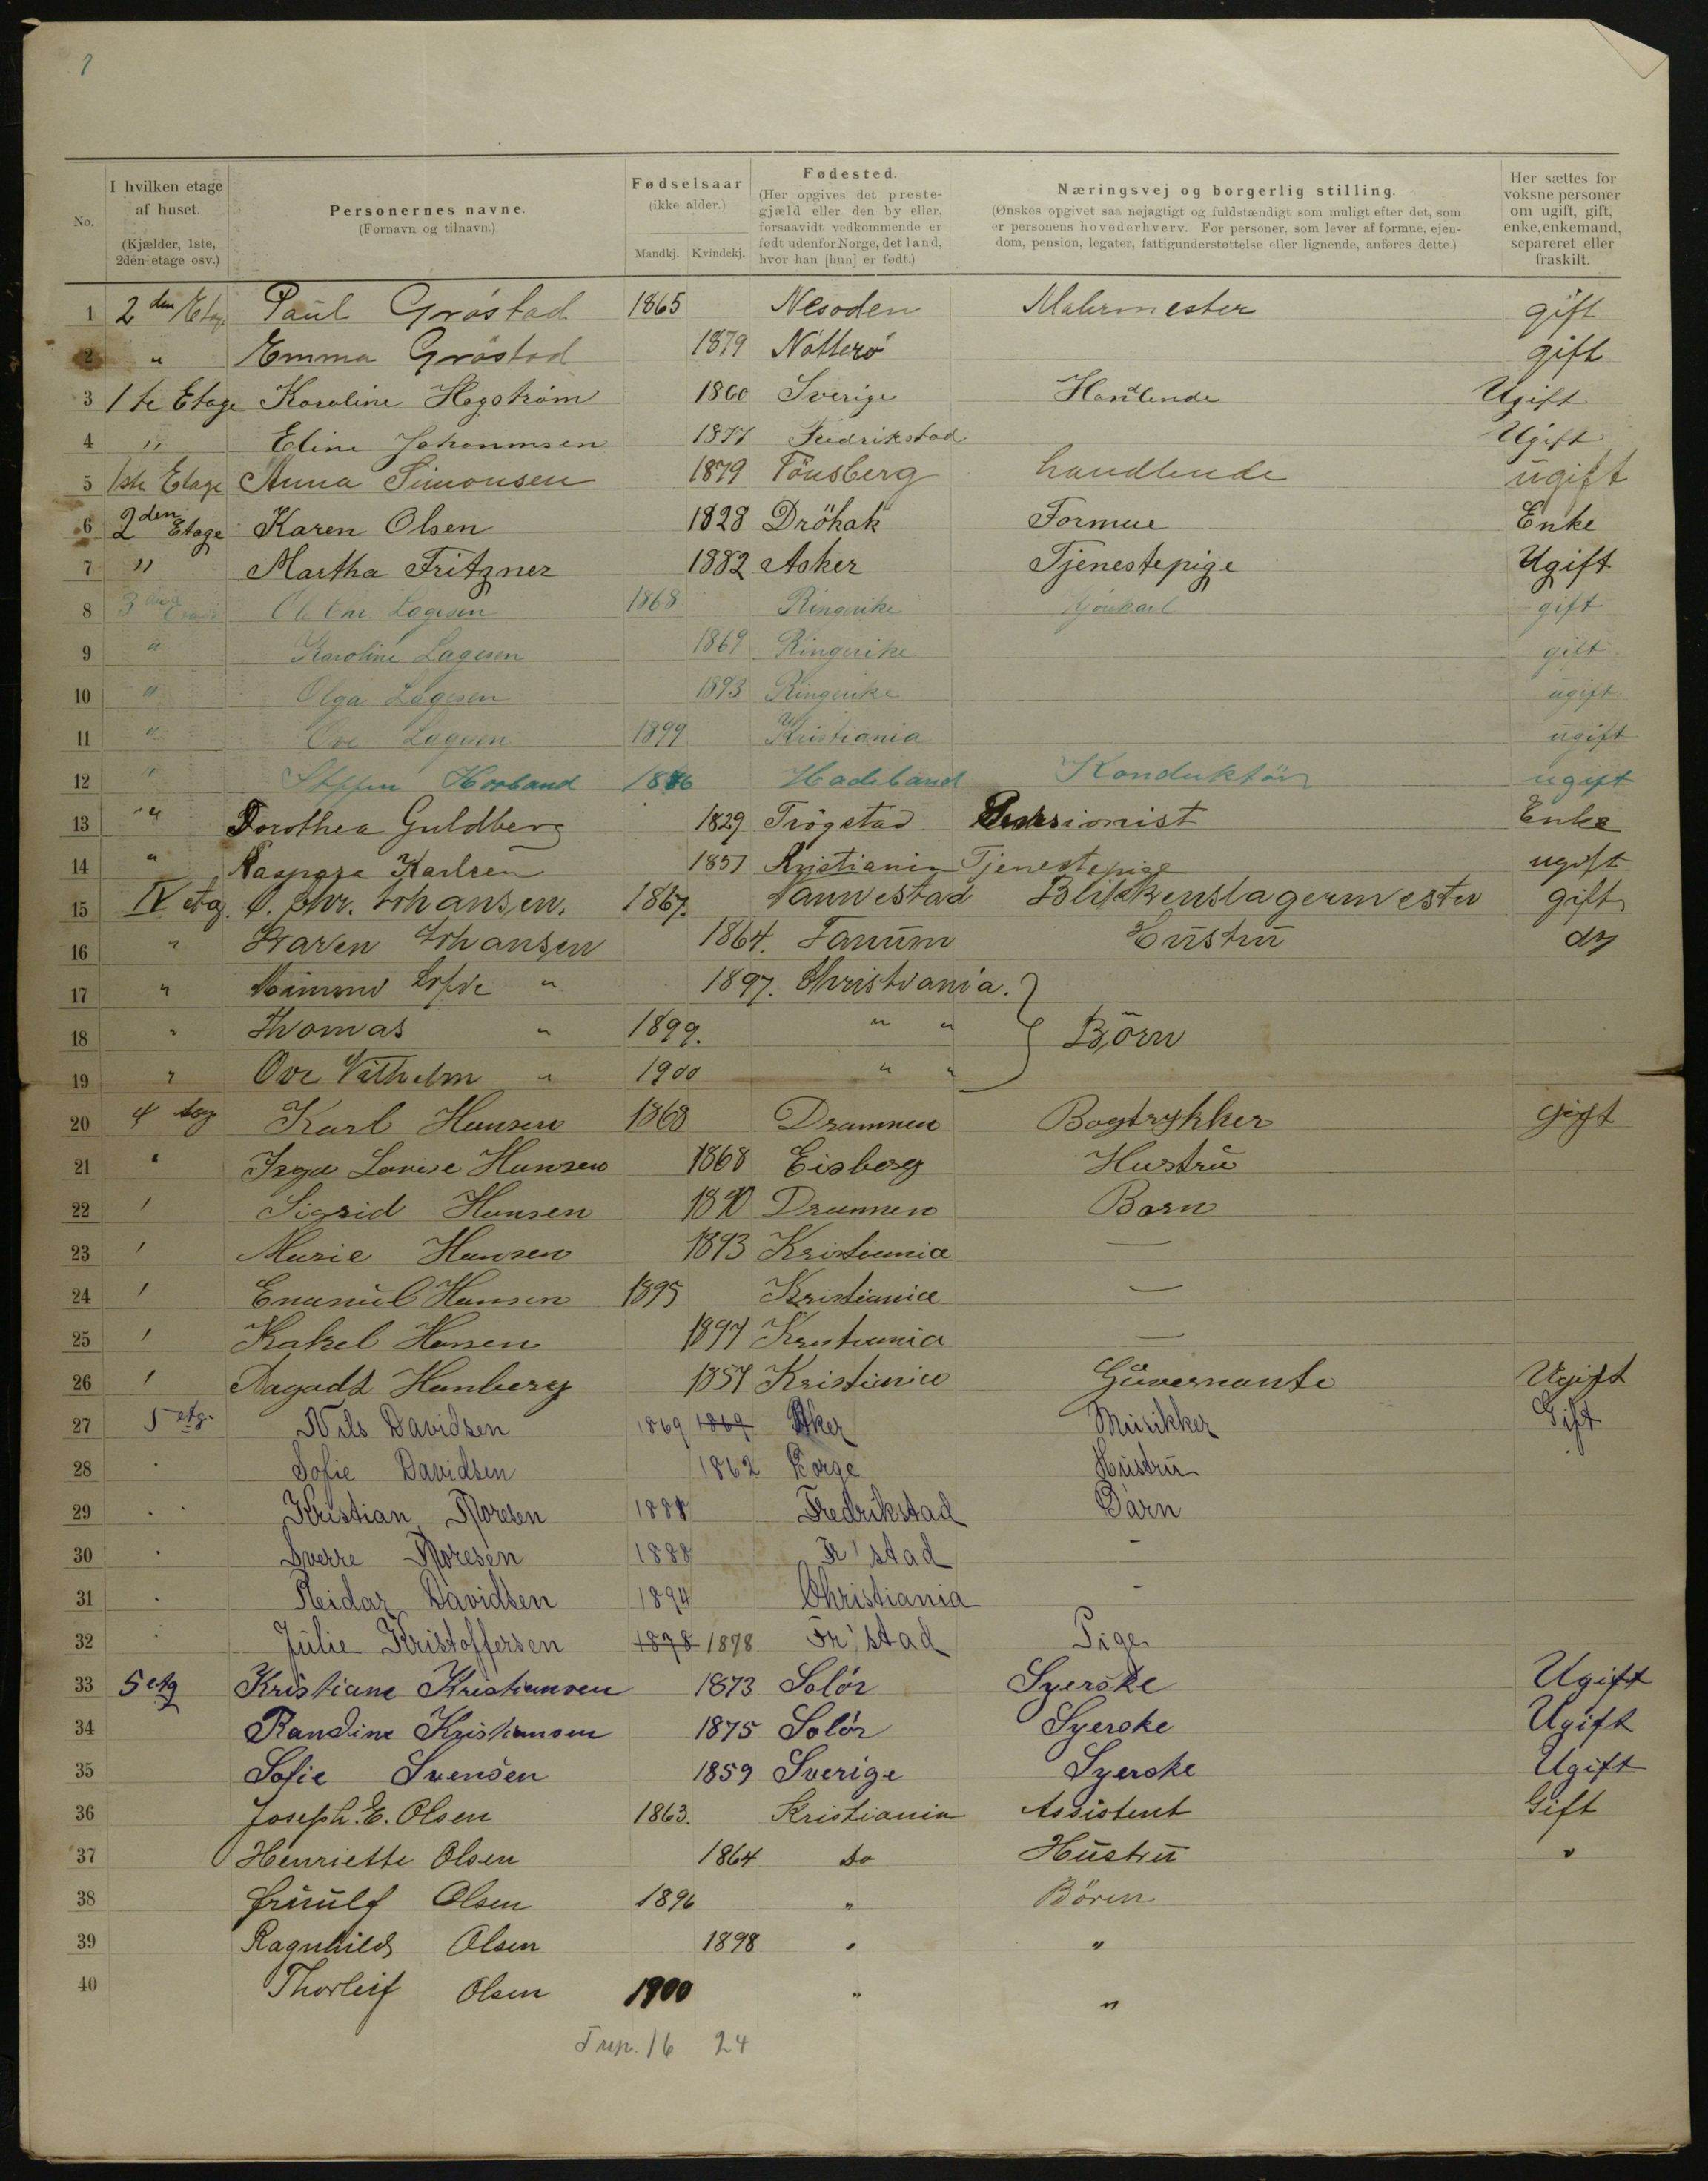 1
No.
I hvilken etage af huset.
(Kjælder, 1ste, 2den etage osv.)
Personernes navne.
(Fornavn og tilnavn.)
Fødselsaar
(ikke alder.)
Mandkj. Kvindekj.
Fødested.
(Her opgives det preste-
gjæld eller den by eller,
forsaavidt vedkommende er
født udenfor Norge, det land,
hvor han [hun] er født.)
Næringsvej og borgerlig stilling.
(Ønskes opgivet saa nøjagtigt og fuldstændigt som muligt efter det, som
er personens hovederhverv. For personer, som lever af formue, ejen-
dom, pension, legater, fattigunderstøttelse eller lignende, anføres dette.)
Her sættes for
voksne personer
om ugift, gift,
enke, enkemand,
separeret eller
fraskilt.
1 2den Etag Paul Gróstad 1865 Nesoden Malermester gift
2 " Emma Gróstad 1879 Nótteró gift
3 1te Etage Karoline Hogstrøm 1860 Sverige Handlende Ugift
4 " Eline Johannsen 1877 Fredrikstad Ugift
5 1ste Etage Anna Simonsen 1879 Tönsberg handlende ugift
6 2den Etage Karen Olsen 1828 Dröbak Formue Enke
7 " Martha Fritzner 1882 Asker Tjenestepige Ugift
8 3 Lagesen 1868 Ringerike gift
9 " Karoline Lagesen 1869 Ringerike gift
10 " Olga Lagesen 1893 Ringerike ugift
11 " Ove Lagesen 1899 Kristiania ugift
12 " Steffen 1876 Hadeland Konduktör ugift
13 " Dorothea Guldberg 1829 Trögstad Pensionist Enke
14 " Kaspara Karlsen 1857 Kristiania Tjenestepige ugift
15 IV etag. Chr. Johansen. 1867. Nannestad Blikkenslagermester gift
16 " Karen Johansen 1864. Fanum Hustru do
17 " Sofie " 1897. Christiania.
18 " Thomas " 1899. " " Börn
19 " Ove Vilhelm " 1900 " "
20 4 etag Karl Hansen 1868 Drammen Bogtrykker gift
21 " Inga Lovise Hansen 1868 Eisberg Hustru
22 " Sigrid Hansen 1890 Drammen Barn
23 " Marie Hansen 1893 Kristiania —
24 " Emanuel Hansen 1895 Kristiania —
25 " Rakel Hansen 1897 Kristiania —
26 " Aagadt Hamberg 1857 Kristiania Guvernante Ugift
27 5 etg. Nils Davidsen 1869 1869 Aker Musikker Gift
28 " Sofie Davidsen 1862 Borge Hustru
29 " Kristian Thoresen 1888 Fredrikstad Barn
30 " Sverre Thoresen 1888 Fr'stad -
31 " Reidar Davidsen 1894 Christiania -
32 " Julie Kristoffersen 1878 1878 Fr'stad Pige
33 5 etg Kristiane Kristiansen 1873 Solór Syerske Ugift
34 Randine Kristiansen 1875 Solór Syerske Ugift
35 Sofie Svensen 1859 Sverige Syerske Ugift
36 Joseph. E. Olsen 1863. Kristiania Assistent Gift
37 Henriette Olsen 1864 do Hustru "
38 Olsen 1896 " Börn
39 Ragnhild Olsen 1898 " "
40 Thorleif Olsen 1900 " "
16 24